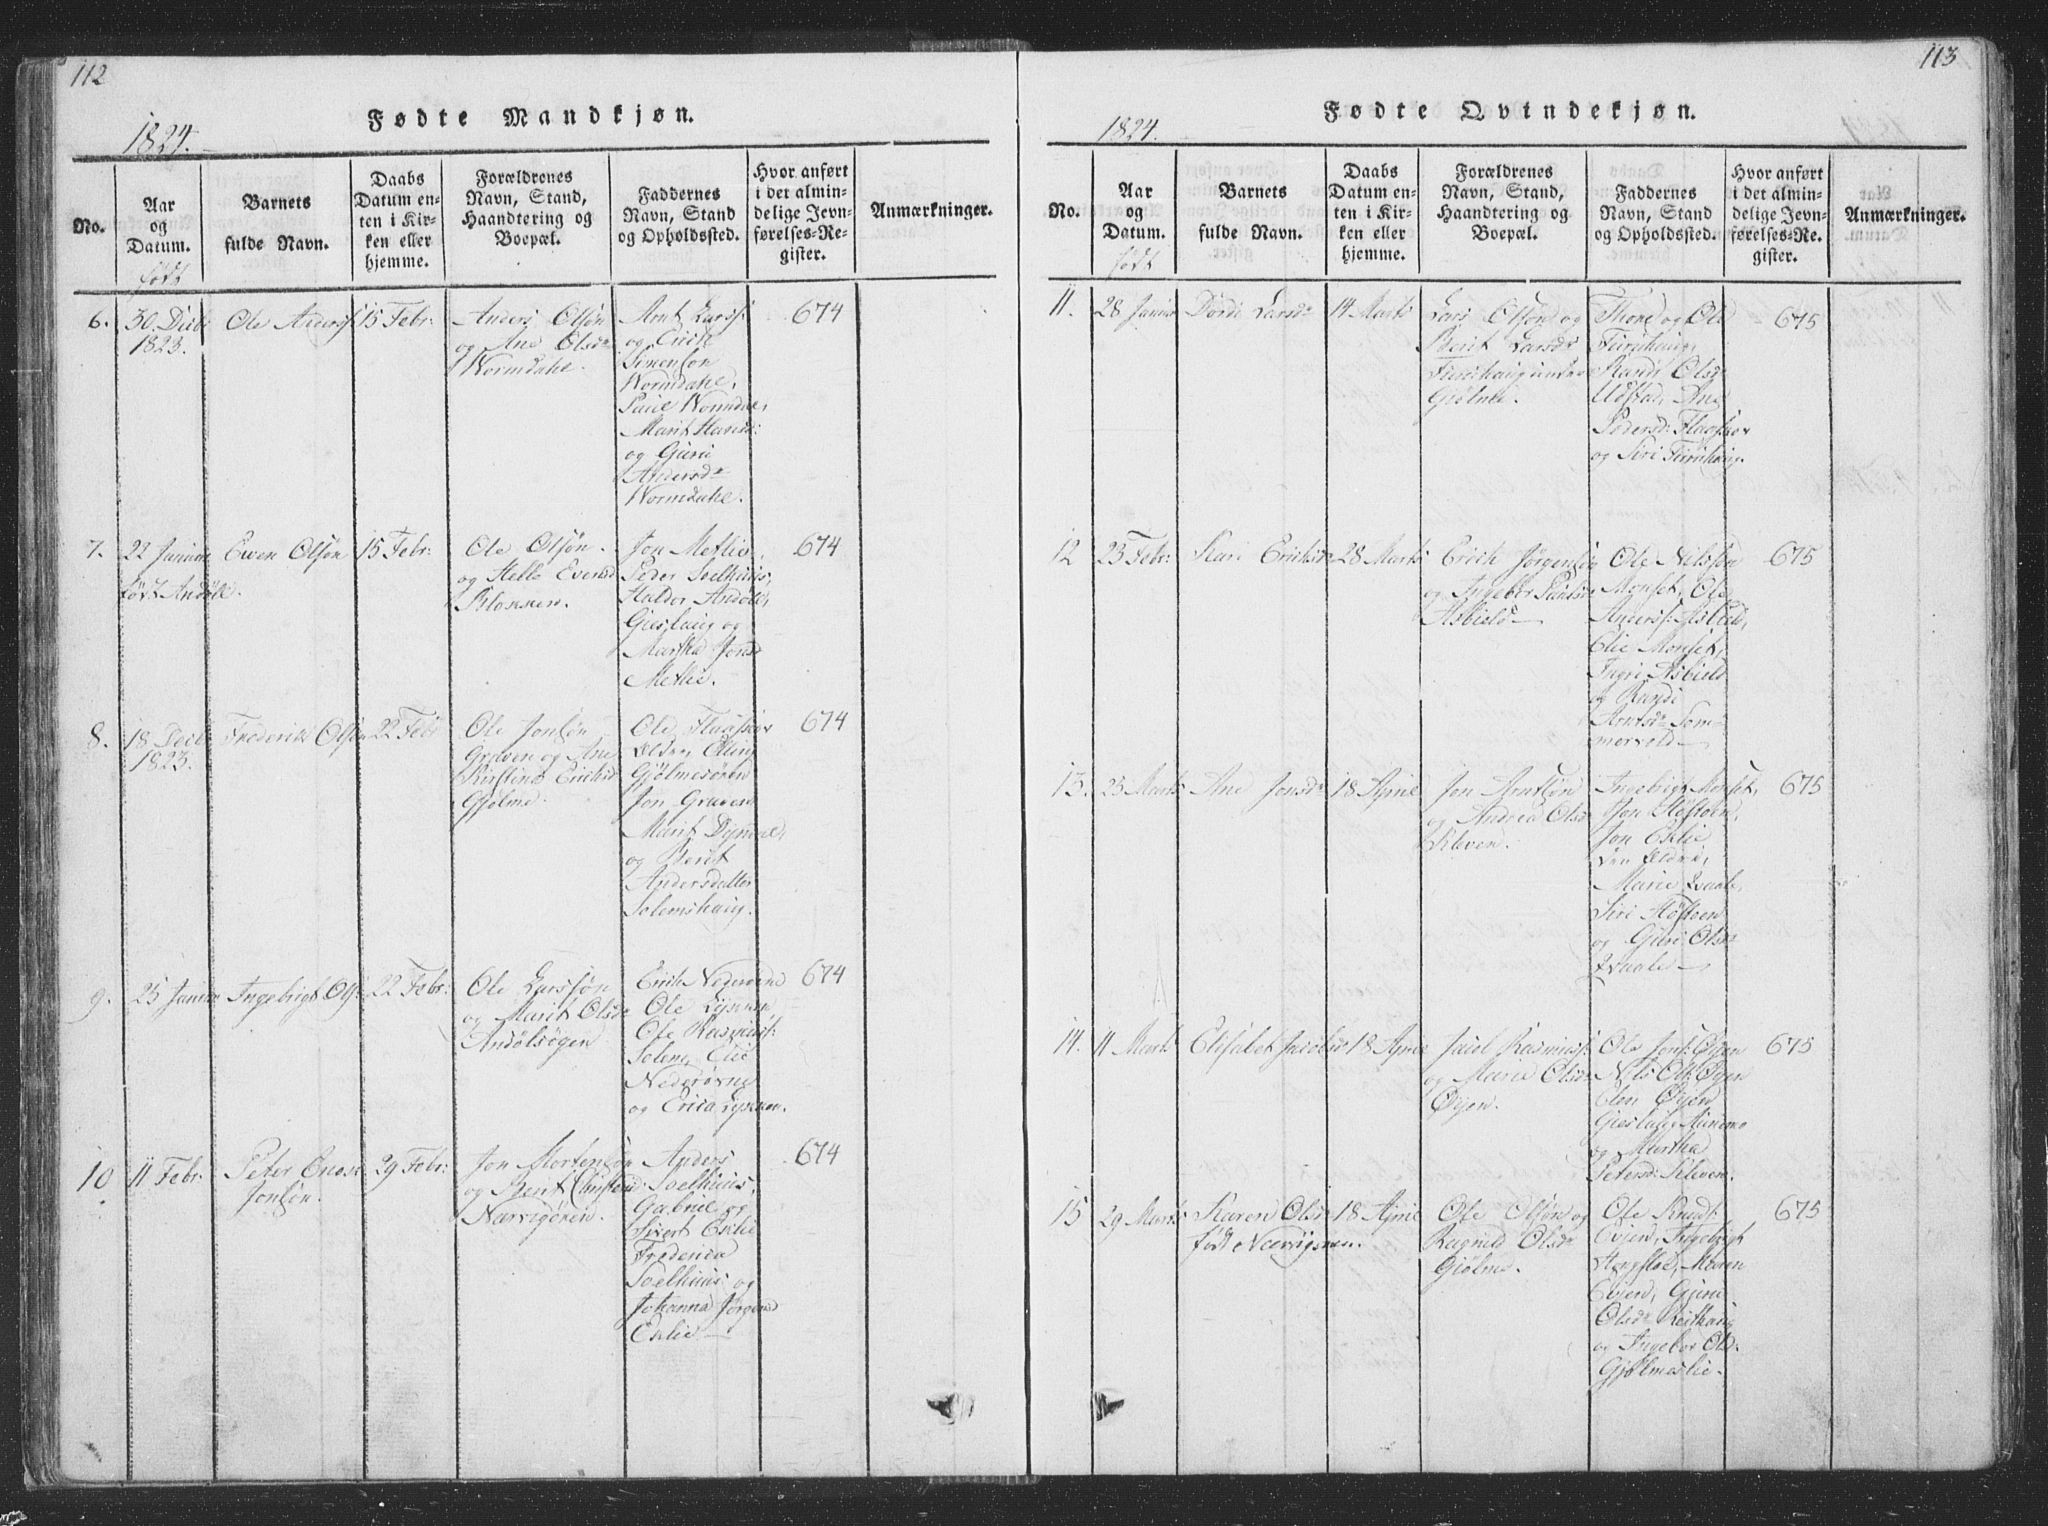 112
Fødte Mandkjøn.
1824.
No.
Aar
og
Datum.
født
Barnets
fulde Navn.
Daabs
Datum en-
ten i Kir-
ken eller
hjemme.
Forældrenes
Navn, Stand,
Haandtering og
Boepæl.
Faddernes
Navn, Stand
og Opholdssted.
Hvor anført
i det almin-
delige Jevn-
førelses-Re-
gister.
Anmærkninger.
6.
30. Decbr
1823.
Ole Anderss:
15 Febr:
Anders Olsøn
og Ane Olsdr
Wormdahl.
Arnt Larss:
og Erich
Simensøn
Wormdahl,
Paul Wormdal,
Marit Hansd:
og Guru
Andersdr
Wormdahl.
674
7.
22 Januar
født Andøls.
Even Olsøn
15 Febr:
Ole Olsøn
og Helle Evensd
Blokken.
Jon Metlie,
Peder Soelhuus,
Haldor Andøl,
Gieslaug og
Martha Jonsd
Metlie.
674
8.
18 Decbr
1823.
Frederik Olsøn
22 Febr
Ole Jonsøn
Graven og Ane
Kirstine Erichsd
Gjølme.
Ole Flaaskov
Elling
Gjølmesøren
Jon Graven
Marit
og Berit
Andersdatter
Solemshaug.
674
9.
25 Januar
Ingebrigt Ols:
22 Febr:
Ole Larssøn
og Marit Olsdr
Andølsøgen
Erich Nederøvne
Ole Lykken
Ole Rasmuss:
Solem, Elie
Nederøvne
og Erica Lykken.
674
10
11 Febr:
Peter Enos
Jonsøn.
29 Febr:
Jon Mortensøn
og Berit Christensd:
Narvigøren.
Anders
Soelhuus,
Gabriel og
Sivert Eklie
Frederica
Soelhuus og
Johanna Jørgensd
Eklie
674
113
Fødte Qvindekjøn.
1824.
No.
Aar
og
Datum.
født
Barnets
fulde Navn.
Daabs
Datum en-
ten i Kir-
ken eller
hjemme.
Forældrenes
Navn, Stand,
Haandtering og
Boepæl.
Faddernes
Navn, Stand
og Opholdssted.
Hvor anført
i det almin-
delige Jevn-
førelses-Re-
gister.
Anmærkninger.
11.
28 Januar
Dordi Larsdr
14 Marts
Lars Olsøn og
Berit Larsdr
Furuhaug under
Gjølme.
Thore og Ole
Furuhaug,
Randi Olsdr
Udstad, Ane
Pedersd: Flaaskov
og Siri Furuhaug.
675
12
23 Febr:
Kari Erichsdr
28 Marts
Erich Jørgensøn
og Ingebor Paulsdr
Asbield
Ole Nilssøn
Monset, Ole
Anderss: Asbield,
Elie Monset,
Ingri Asbield
og Randi
Arntsdr Som-
mervold
675
13.
25 Marts
Ane Jonsdr
18 April
Jon Arntsøn
og Andrea Olsdr
Kleven.
Ingebrigt Monset,
Jon Støstoen,
Jon Eklie
den Eldre,
Marie Qvaale,
Siri Støstoen
og Guri Olsdr
Qvaale
675
14.
11 Marts
Elisabet Jacobsd
18 April
Jacob Rasmuss:
og Marie Olsdr
Øijen.
Ole Jons: Øijen
Nils Ols: Øijen
Elen Øijen
Gieslaug Aunemo
og Martha
Petersd: Kleven.
675
15
29 Marts
Karen Olsdr
født i Narvigøren.
18 April
Ole Olsøn og
Ragnild Olsdr
Gjølme.
Ole Knuds:
Evjen, Ingebrigt
Hongsloe, Maren
Evjen, Guru
Olsdr Reithaug
og Ingebor Olsd:
Gjølmeslie.
675